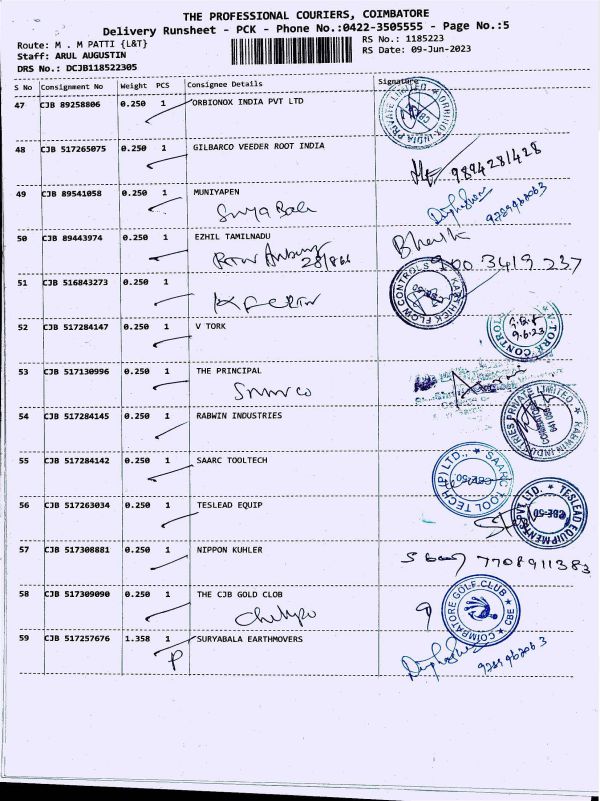 THE PROFESSIONAL COURIERS, COIMBATORE
Delivery Runsheet - PCK - Phone No.:0422-3505555 - Page No.:5
Route: M . M PATTI {L&T}
RS No.: 1185223
Staff: ARUL AUGUSTIN
RS Date: 09-Jun-2023
DRS No.: DCJB118522305
S No Consignment No Weight PCS Consignee Details Signature
47 CJB 89258806 0.250 1 ORBIONOX INDIA PVT LTD
48 CJB 517265075 0.250 1 GILBARCO VEEDER ROOT INDIA
9894281428
49 CJB 89541058 0.250 1 MUNIYAPEN
Surya Bala
9789462063
50 CJB 89443974 0.250 1 EZHIL TAMILNADU
900 3419 237
51 CJB 516843273 0.250 1
52 CJB 517284147 0.250 1 V TORK
9.6.23
53 CJB 517130996 0.250 1 THE PRINCIPAL
54 CJB 517284145 0.250 1 RABWIN INDUSTRIES
55 CJB 517284142 0.250 1 SAARC TOOLTECH
SAARC TOOL TECH (P) LTD.
CBE-50
56 CJB 517263034 0.250 1 TESLEAD EQUIP
TESLEAD EQUIPMENTS PVT. LTD.
CBE-50
57 CJB 517308881 0.250 1 NIPPON KUHLER
7708911383
58 CJB 517309090 0.250 1 THE CJB GOLD CLOB
COIMBATORE GOLF CLUB
CBE
59 CJB 517257676 1.358 1 SURYABALA EARTHMOVERS
P
9789462063